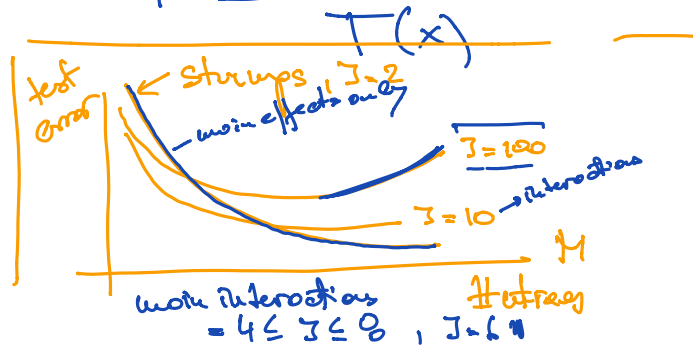 T(x)
test error
stumps, J=2
main effects only
J=100
J=10 → interactions
M
# trees
main interactions
= 4 ≤ J ≤ 8, J=6